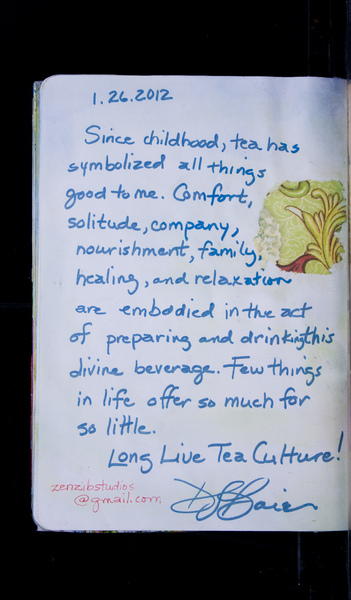 1.26.2012
Since childhood, tea has
symbolized all things
good to me. Comfort,
solitude, company,
nourishment, family,
healing, and relaxation
are embodied in the act
of preparing and drinking this
divine beverage. Few things
in life offer so much for
so little.
Long Live Tea Culture!
zenzibstudios
@gmail.com